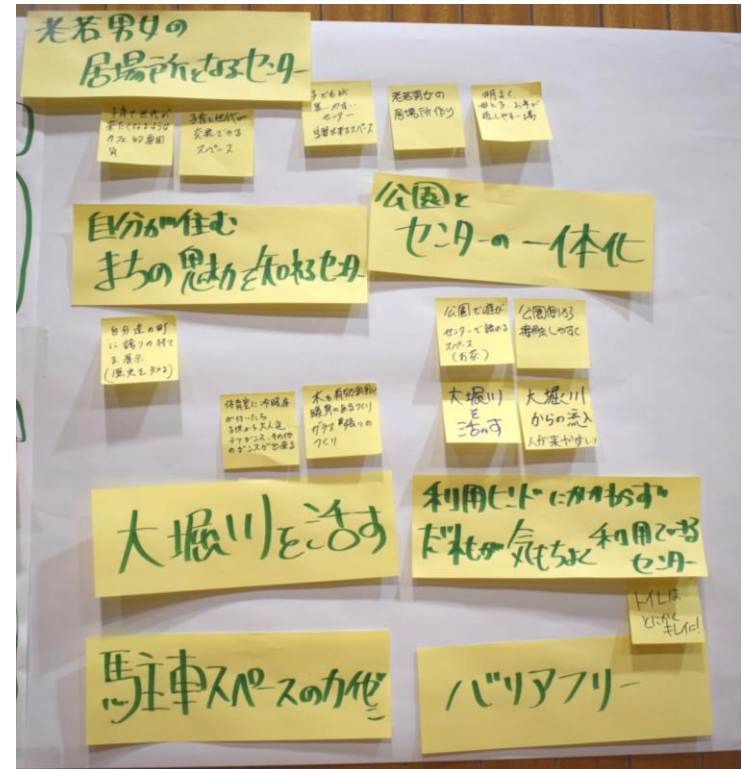 老若男女の
居場所となるセンター
子育て世代が
来たくなるような
カフェ的な雰囲
気
子育て世代が
交流できる
スペース
子どもが
センター
スペース
老若男女の
居場所作り
明るく、
自分が住む
まちの魅力を知れるセンター
公園と
センターの一体化
自分達の町
に誇りの持て
る展示
(歴史を知る)
公園で遊び
センターで休める
スペース
(お茶)
公園側から
体育室に冷暖房
が付いたら
子供から大人迄
チアダンス、その他
のダンスが出来る
木を有効利用し
暖房のあるつくり
ガラス張りの
つくり
大堀川
を
活かす
大堀川
からの流入
人が来やすい
大堀川を活す
利用
だれもが気もちよく利用できる
センター
トイレは
とにかく
キレイに!
駐車スペースの
バリアフリー